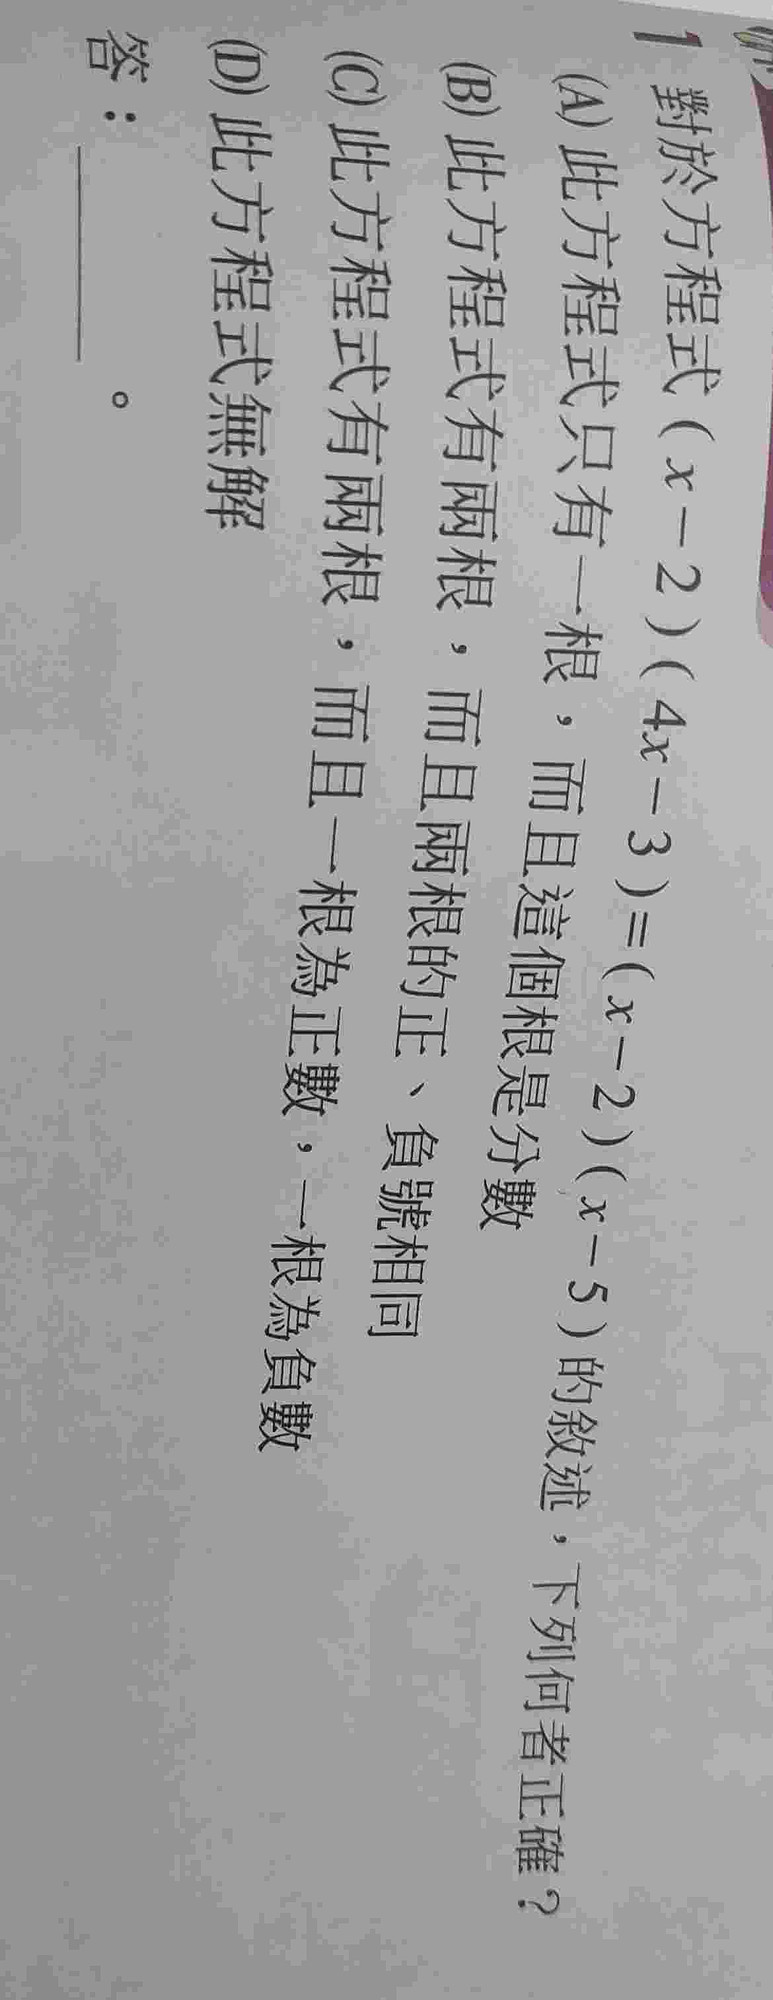 1 對於方程式(x-2)(4x-3)=(x-2)(x-5)的敘述,下列何者正確?
(A) 此方程式只有一根,而且這個根是分數
(B) 此方程式有兩根,而且兩根的正、負號相同
(C) 此方程式有兩根,而且一根為正數,一根為負數
(D) 此方程式無解
答:________。